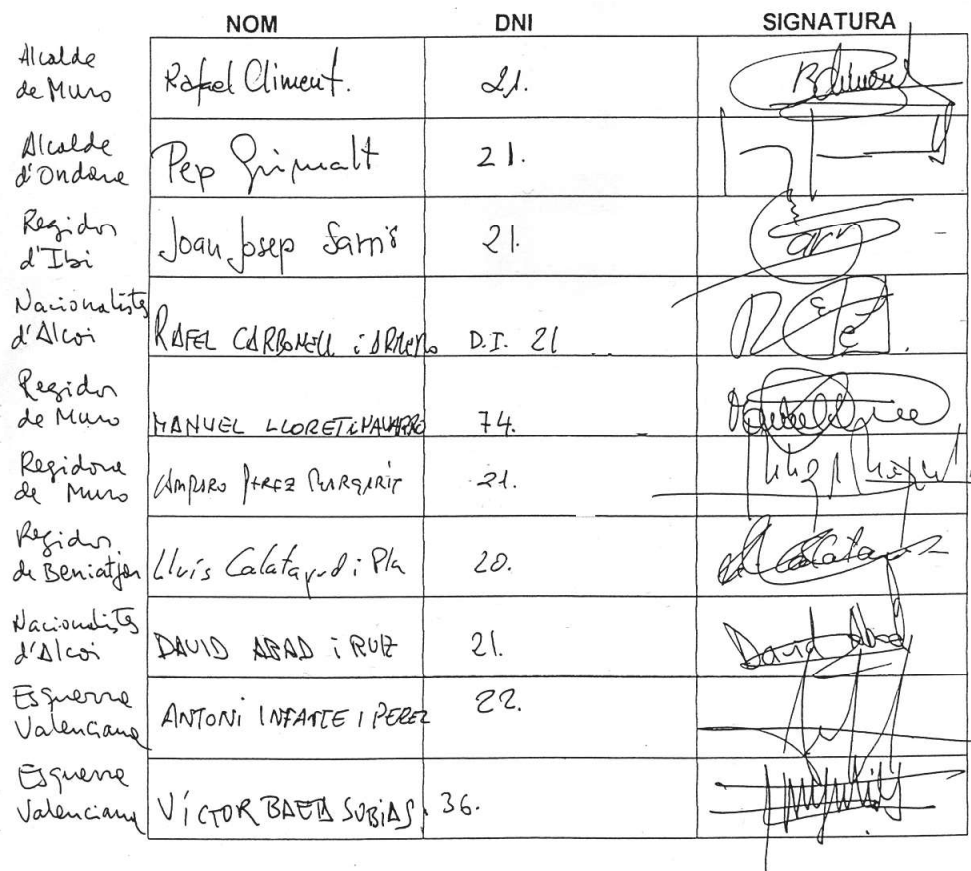 NOM DNI SIGNATURA
Alcalde
de Muro Rafael Climent. 21.
Alcalde
d'Ondara Pep Grimalt 21.
Regidor
d'Ibi Joan Josep 21.
Nacionalistes
d'Alcoi RAFEL CARBONELL i D.I. 21
Regidor
de Muro MANUEL LLORET i NAVARRO 74.
Regidora
de Muro AMPARO PEREZ MARGARIT 21.
Regidor
de Beniatjar Lluís Calatayud i Pla 20.
Nacionalistes
d'Alcoi DAVID ABAD i RUIZ 21.
David Abad
Esquerra
Valenciana ANTONI INFANTE I PEREZ 22.
Esquerra
Valenciana VÍCTOR BAETA SUBIAS. 36.